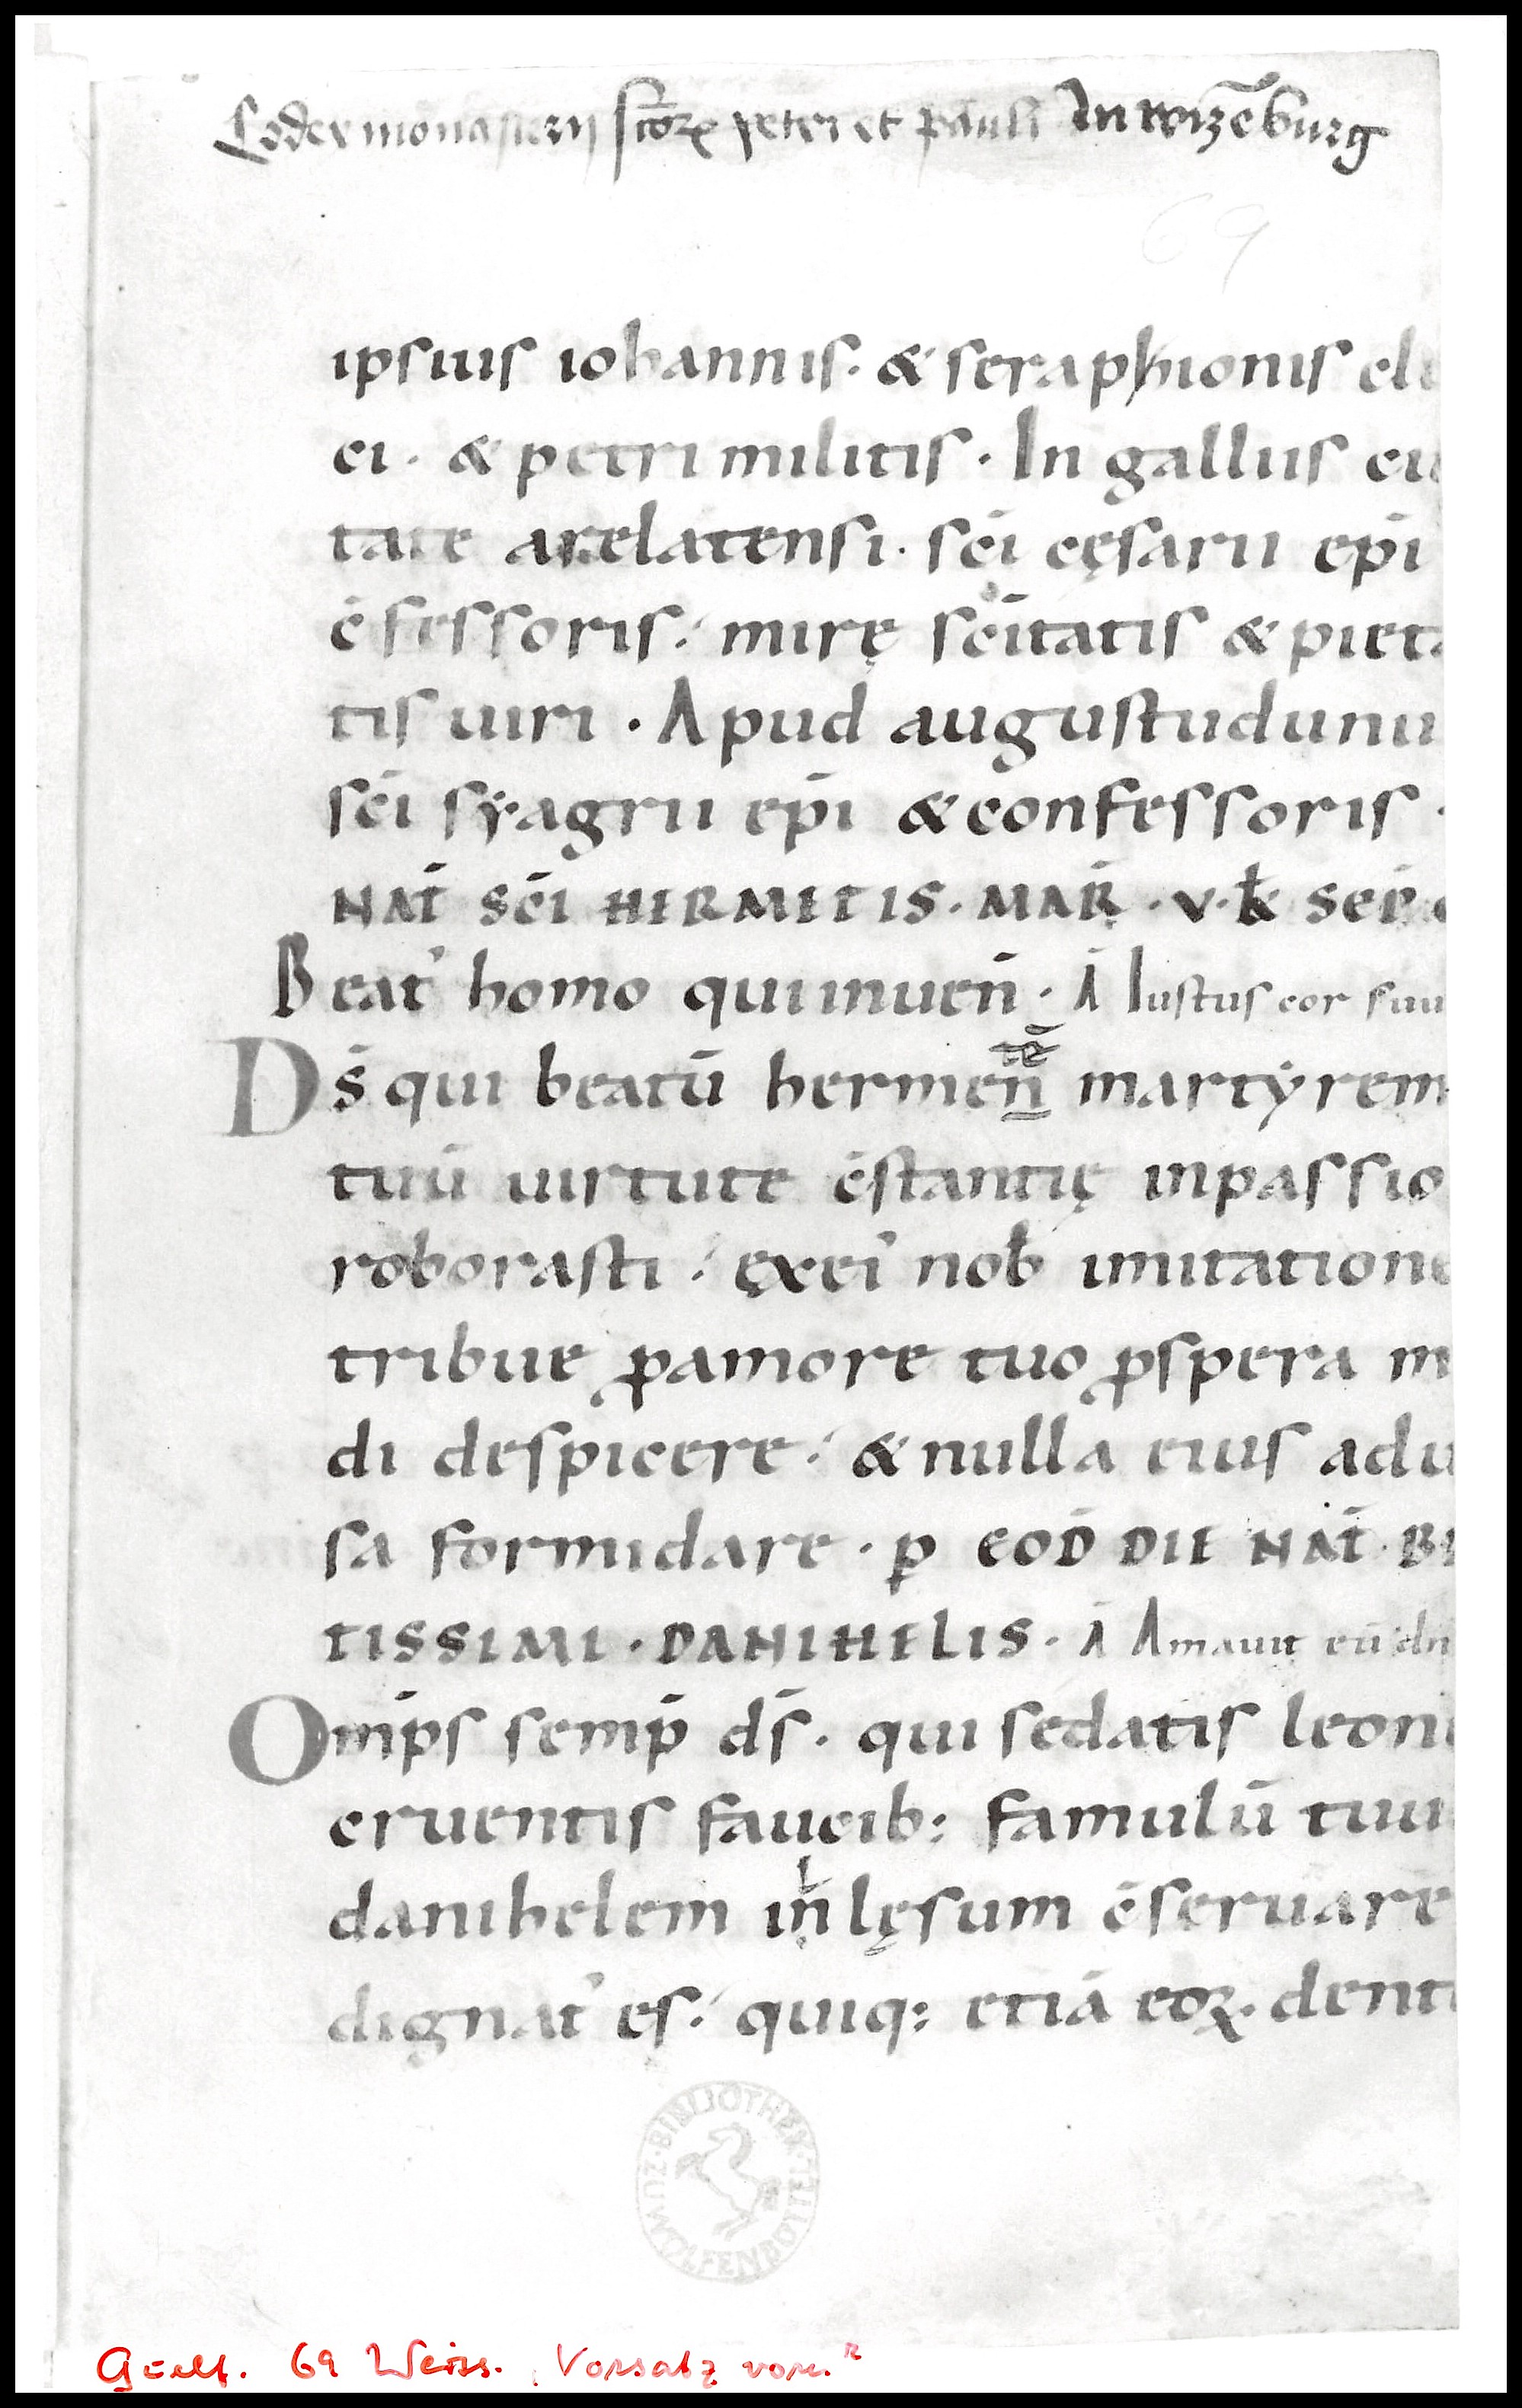 Codex monasterij sctoꝝ petri et pauli In wizēburg
69
ipsius iohannis· & seraphionis cle
ci· & petri militis· In galliis ciui
tate arelatensi· sc̄i cęsarii ep̄i
c̄fessoris· mirę sc̄itatis & pieta
tis uiri· Apud augustudunu
sc̄i syagrii ep̄i & confessoris·
NAT̄ SC̄I HERMETIS· MAR̄· V· K̄L SEP̄
Beat' homo qui inuen̄· Ā Iustus cor suu
D̄s qui beatū hermen̄ martyrem
tuū uirtute c̄stantię in passio
roborasti· ęx ei' nob̄ imitatione
tribue ꝓ amore tuo ꝓspera m
di despicere· & nulla eius adu
sa formidare· p̱ EOD̄ DIE NAT̄· BE
TISSIMI· DANIHELIS· Ā Amauit eū dn̄
Om̄ps semp̄ d̄s· qui sedatis leonu
cruentis faucib: famulū tuu
danihelem inlęsum c̄seruare
dignat' es· quiq: etiā eoꝝ· denti
BIBLIOTHEK ZU WOLFENBÜTTEL
Guelf. 69 Weiss. "Vorsatz vorn"